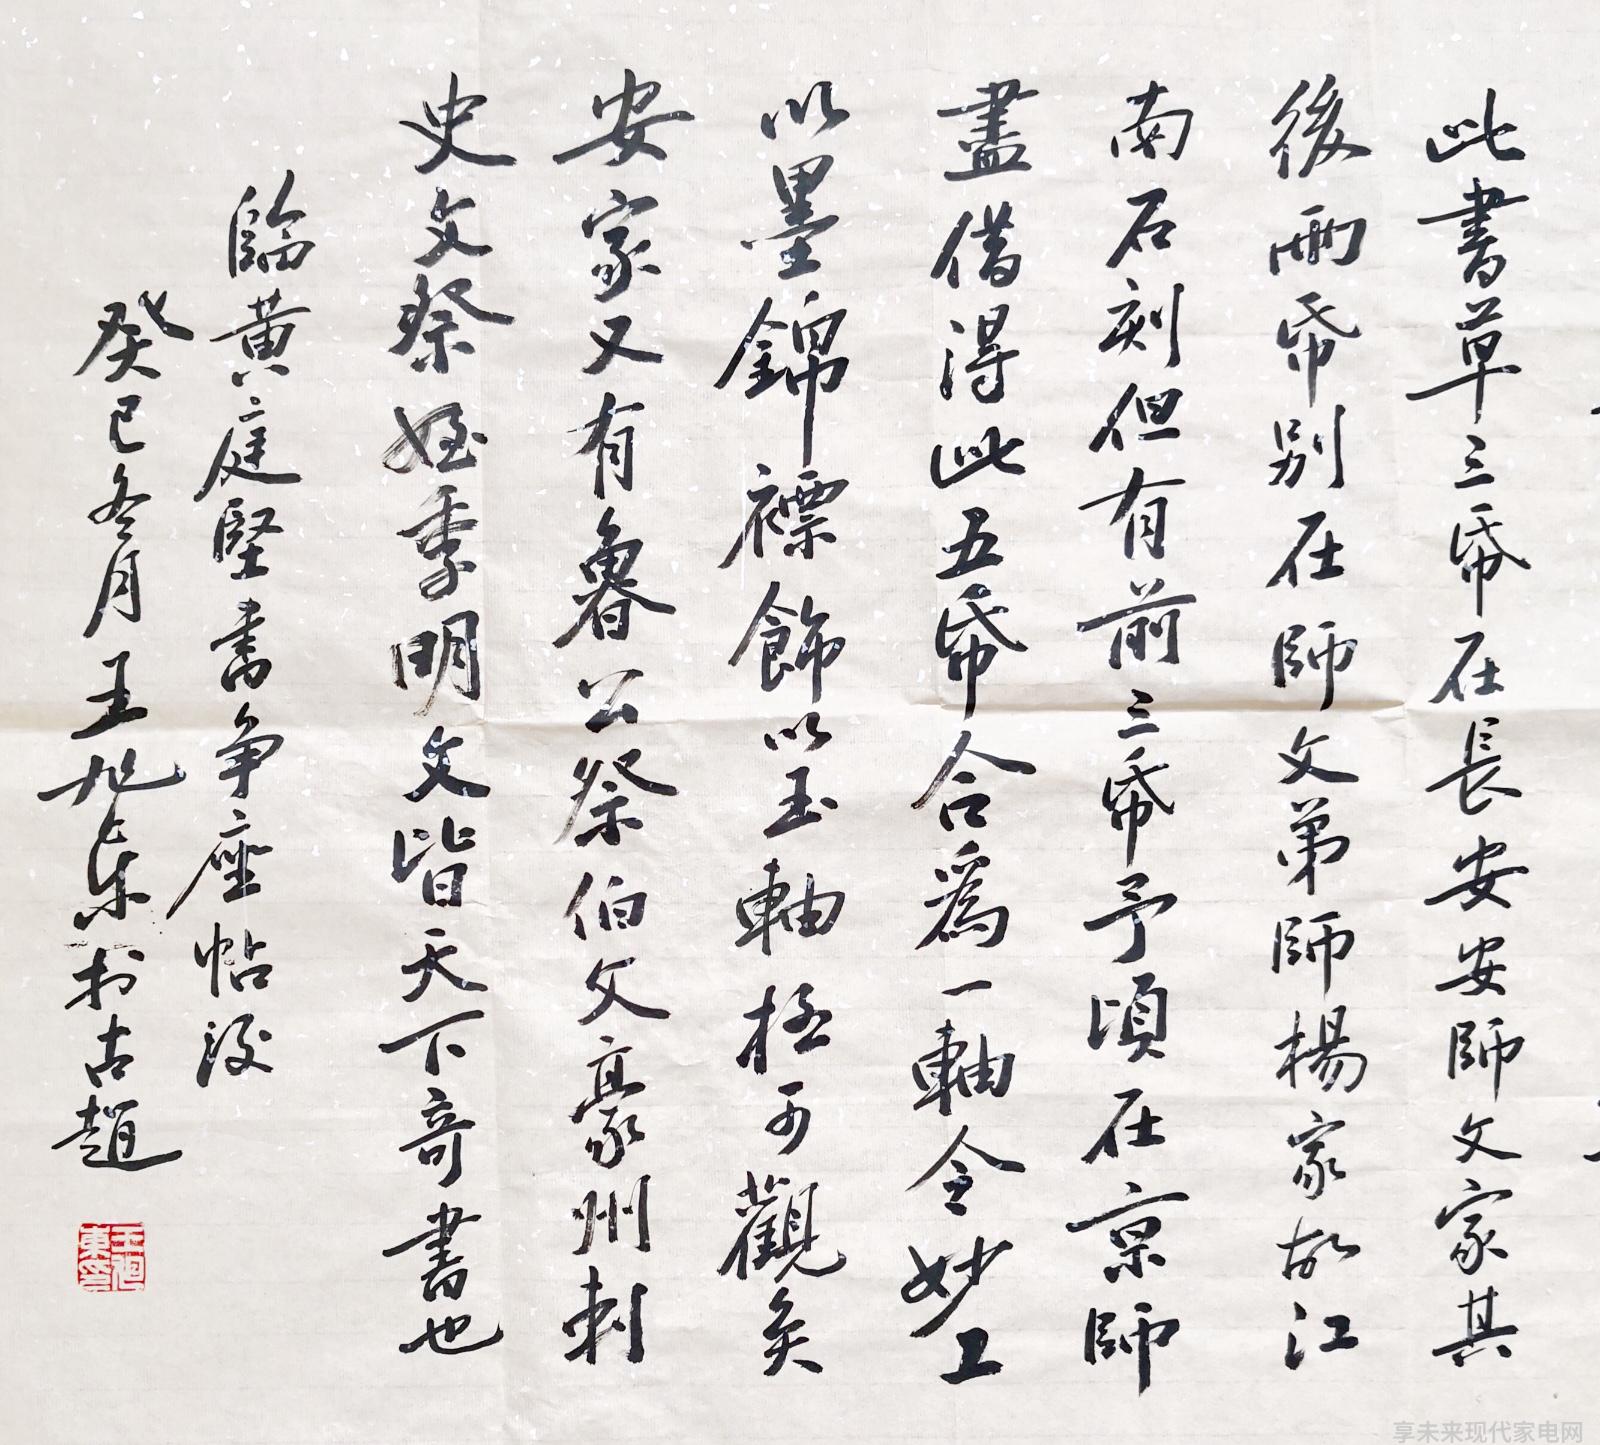 此書草三帋在長安安師文家其
後兩帋別在師文弟師楊家故江
南石刻但有前三帋予頃在京師
盡借得此五帋合為一軸令妙工
以墨錦褾飾以玉軸極可觀矣
安家又有魯公祭伯父豪州刺
史文祭姪季明文皆天下奇書也
臨黃庭堅書爭座帖後
癸巳冬月王旭東於古趙
王旭東印
享未来现代家电网